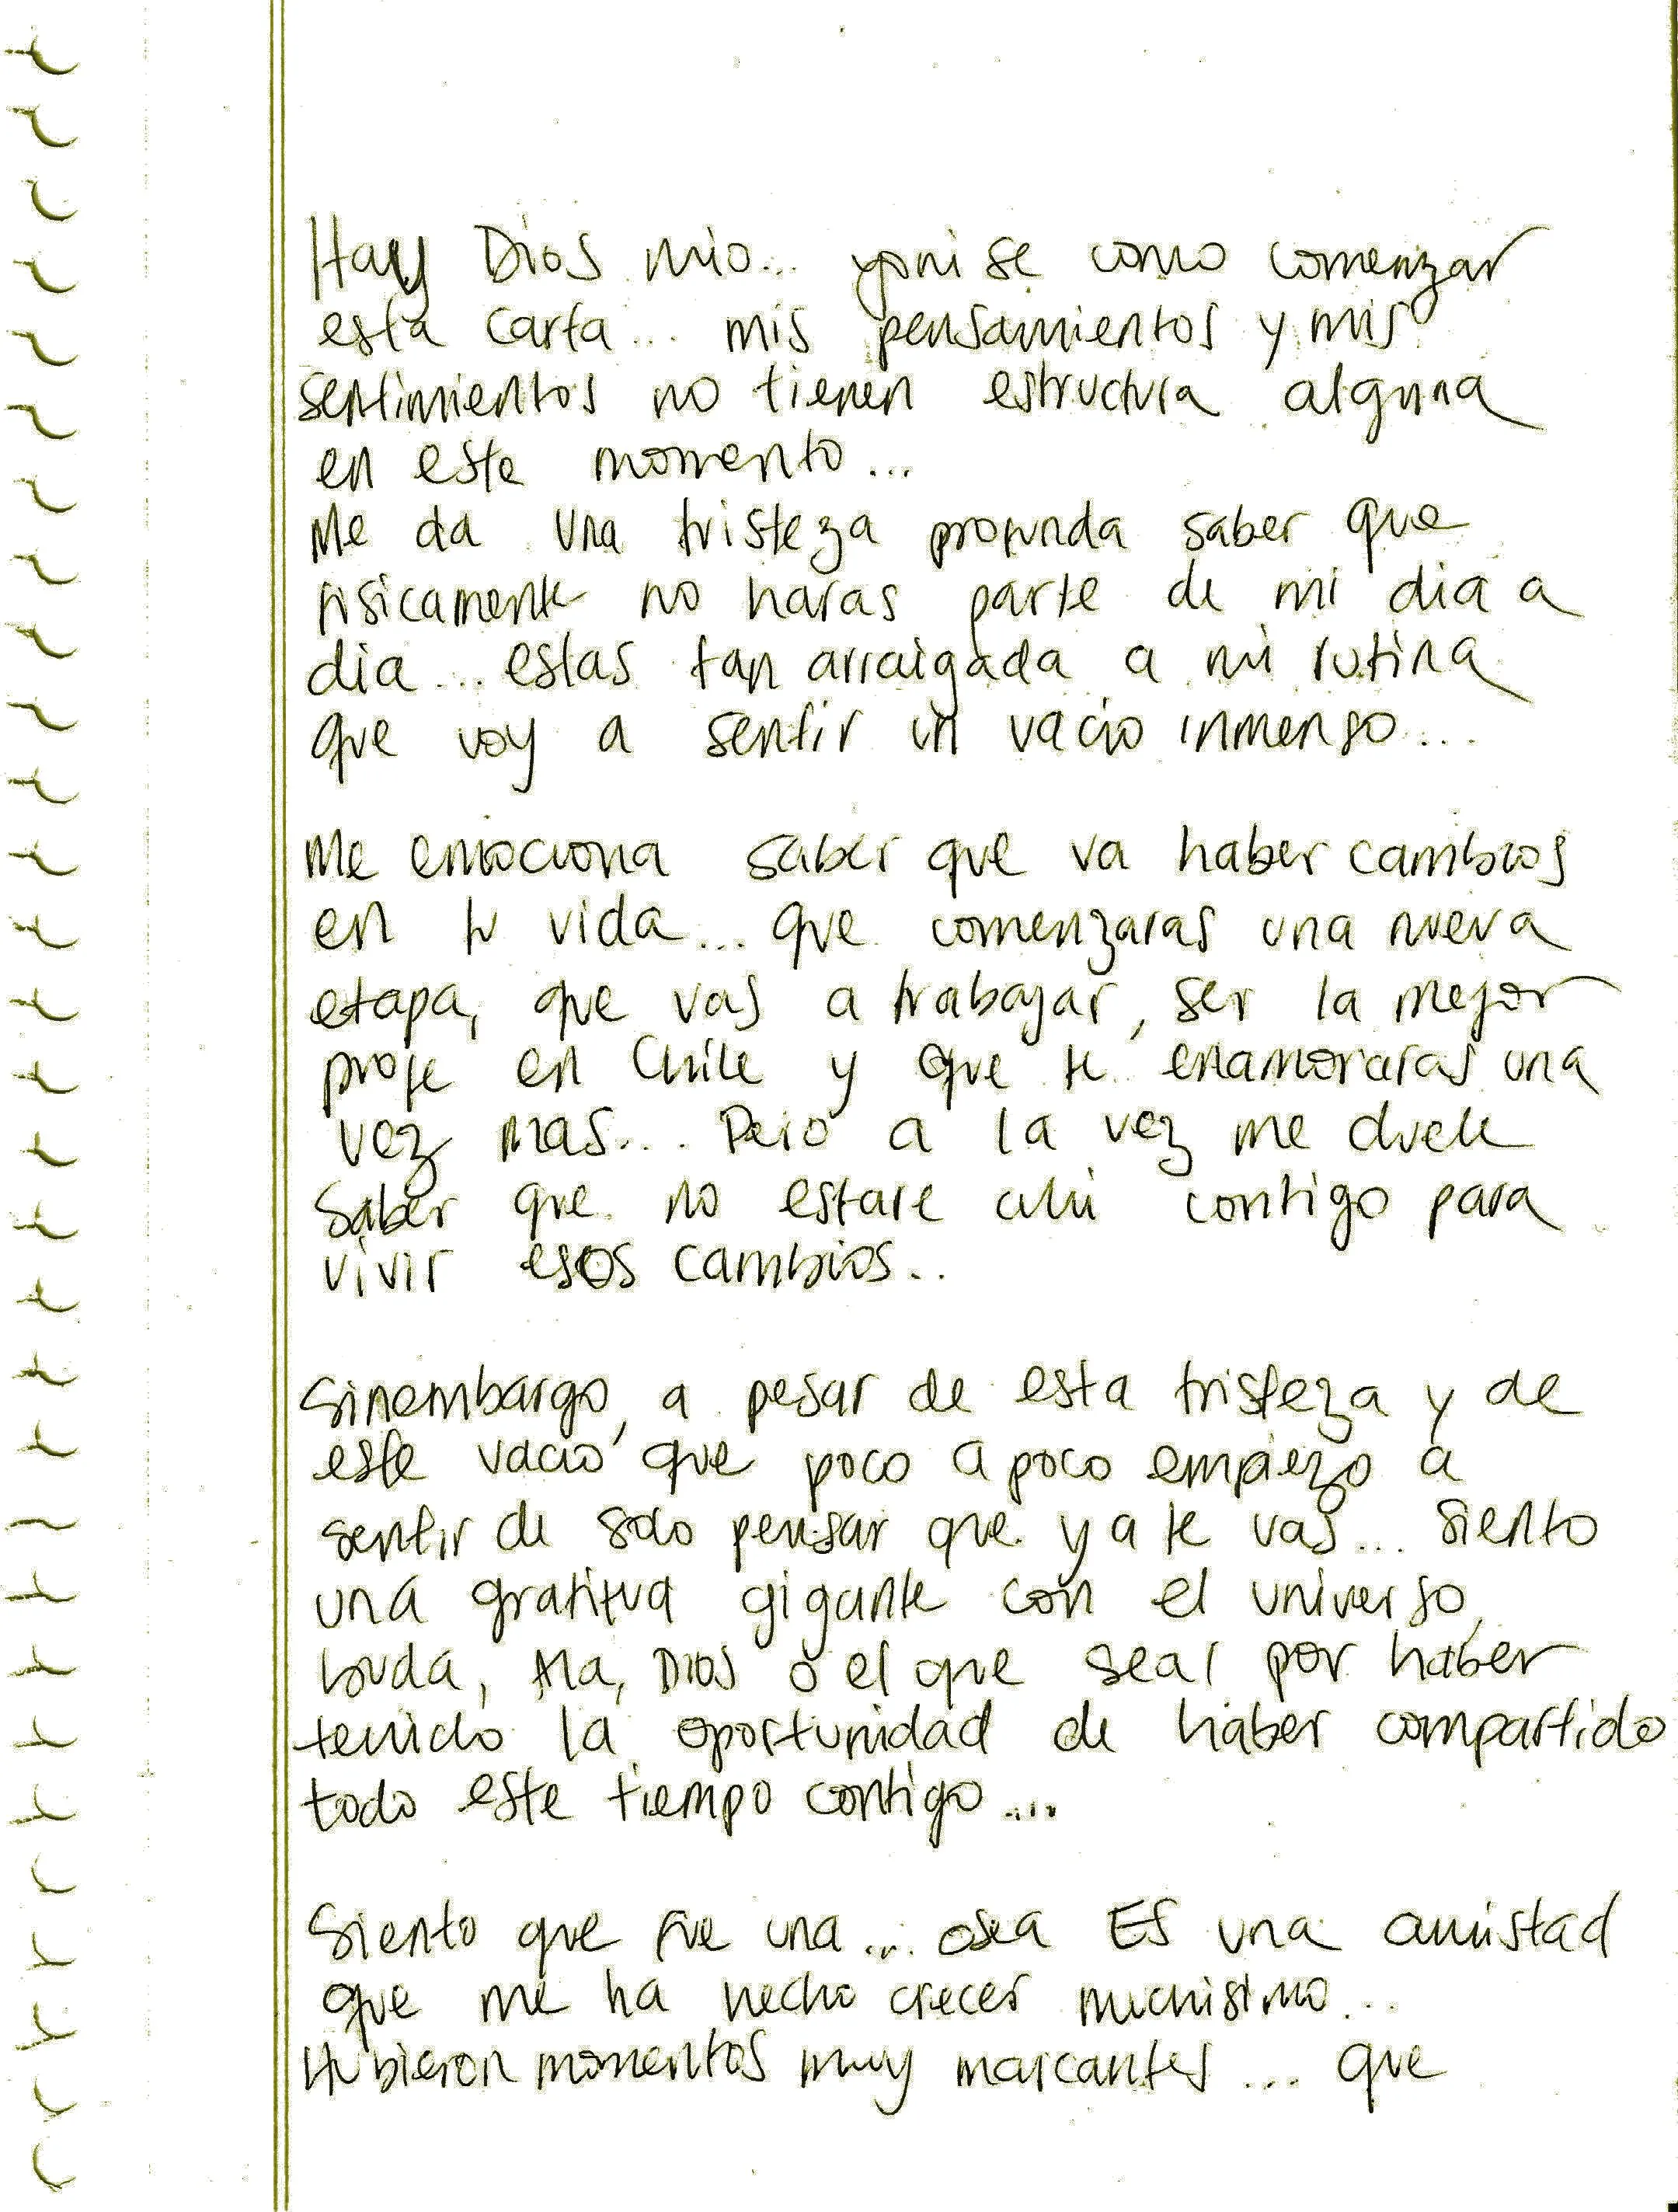 Hay Dios mio... yoni se como comenzar
esta carta... mis pensamientos y mis
sentimientos no tienen estructura alguna
en este momento...
Me da una tristeza profunda saber que
fisicamente no haras parte de mi dia a
dia... estas tan arraigada a mi rutina
que voy a sentir un vacio inmenso...
Me emociona saber que va haber cambios
en tu vida... que comenzaras una nueva
etapa, que vas a trabajar, ser la mejor
profe en Chile y que te enamoraras una
vez mas... Pero a la vez me duele
saber que no estare ahi contigo para
vivir esos cambios..
Sinembargo, a pesar de esta tristeza y de
este vacio que poco a poco empiezo a
sentir de solo pensar que ya te vas... siento
una gratitud gigante con el universo,
Buda, Ala, Dios o el que sea! por haber
tenido la oportunidad de haber compartido
todo este tiempo contigo....
Siento que fue una... osea ES una amistad
que me ha hecho crecer muchisimo...
Hubieron momentos muy marcantes... que